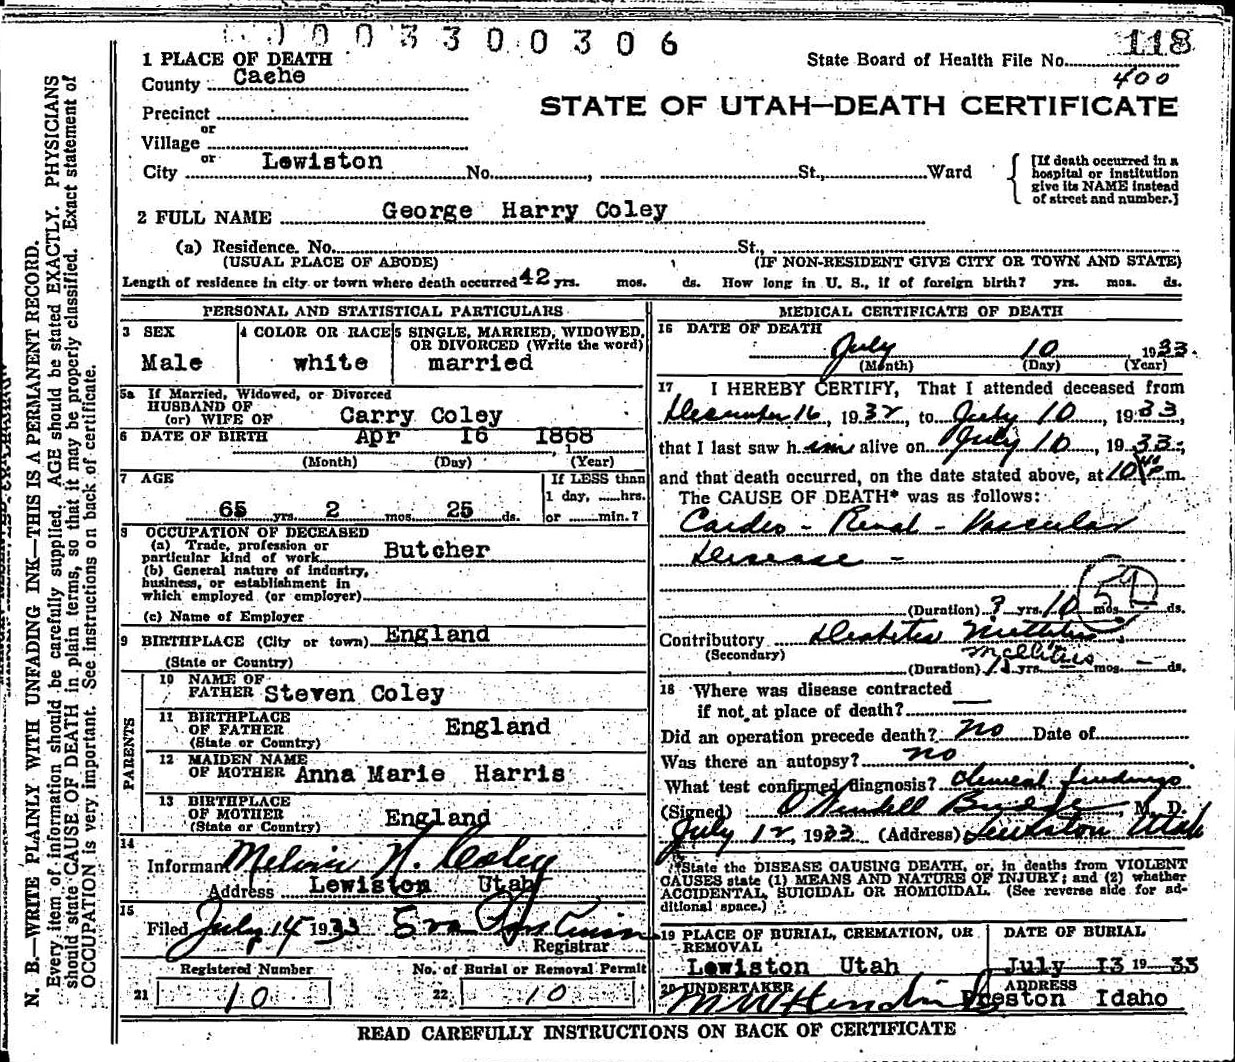 0003300306
118
State Board of Health File No.
400
1 PLACE OF DEATH
County Cache
STATE OF UTAH—DEATH CERTIFICATE
Precinct
or
Village
or
City Lewiston No. , St., Ward
[If death occurred in a
hospital or institution
give its NAME instead
of street and number.]
2 FULL NAME George Harry Coley
(a) Residence. No. St.,
(USUAL PLACE OF ABODE) (IF NON-RESIDENT GIVE CITY OR TOWN AND STATE)
Length of residence in city or town where death occurred 42 yrs. mos. ds. How long in U. S., if of foreign birth? yrs. mos. ds.
PERSONAL AND STATISTICAL PARTICULARS
3 SEX
Male
4 COLOR OR RACE
white
5 SINGLE, MARRIED, WIDOWED,
OR DIVORCED (Write the word)
married
5a If Married, Widowed, or Divorced
HUSBAND OF
(or) WIFE OF Carry Coley
6 DATE OF BIRTH Apr 16 1868
(Month) (Day) (Year)
7 AGE
65 yrs. 2 mos. 25 ds.
If LESS than
1 day, ......hrs.
or ........min.?
8 OCCUPATION OF DECEASED
(a) Trade, profession or
particular kind of work Butcher
(b) General nature of industry,
business, or establishment in
which employed (or employer)
(c) Name of Employer
9 BIRTHPLACE (City or town) England
(State or Country)
PARENTS
10 NAME OF
FATHER Steven Coley
11 BIRTHPLACE
OF FATHER England
(State or Country)
12 MAIDEN NAME
OF MOTHER Anna Marie Harris
13 BIRTHPLACE
OF MOTHER England
(State or Country)
14
Informant Melvin H. Coley
Address Lewiston Utah
15
Filed July 14 1933 Eva
Registrar
Registered Number
21 10
No. of Burial or Removal Permit
22 10
MEDICAL CERTIFICATE OF DEATH
16 DATE OF DEATH
July 10 1933.
(Month) (Day) (Year)
17 I HEREBY CERTIFY, That I attended deceased from
December 16, 1932, to July 10, 1933,
that I last saw h im alive on July 10, 1933;
and that death occurred, on the date stated above, at 10 P.m.
The CAUSE OF DEATH* was as follows:
Cardio - Renal - Vascular
Disease -
(Duration) ? yrs. 10 mos. ds.
Contributory Diabetes Mellitus
(Secondary) Mellitus
(Duration) yrs. — mos. — ds.
18 Where was disease contracted
if not at place of death? —
Did an operation precede death? No Date of
Was there an autopsy? no
What test confirmed diagnosis? clinical findings
(Signed) M. D.
July 12, 1933 (Address) Lewiston Utah
*State the DISEASE CAUSING DEATH, or, in deaths from VIOLENT
CAUSES state (1) MEANS AND NATURE OF INJURY; and (2) whether
ACCIDENTAL, SUICIDAL OR HOMICIDAL. (See reverse side for ad-
ditional space.)
19 PLACE OF BURIAL, CREMATION, OR
REMOVAL
Lewiston Utah
DATE OF BURIAL
July 13 1933
20 UNDERTAKER
ADDRESS
Preston Idaho
READ CAREFULLY INSTRUCTIONS ON BACK OF CERTIFICATE
N. B.—WRITE PLAINLY WITH UNFADING INK—THIS IS A PERMANENT RECORD.
Every item of information should be carefully supplied. AGE should be stated EXACTLY. PHYSICIANS
should state CAUSE OF DEATH in plain terms, so that it may be properly classified. Exact statement of
OCCUPATION is very important. See instructions on back of certificate.